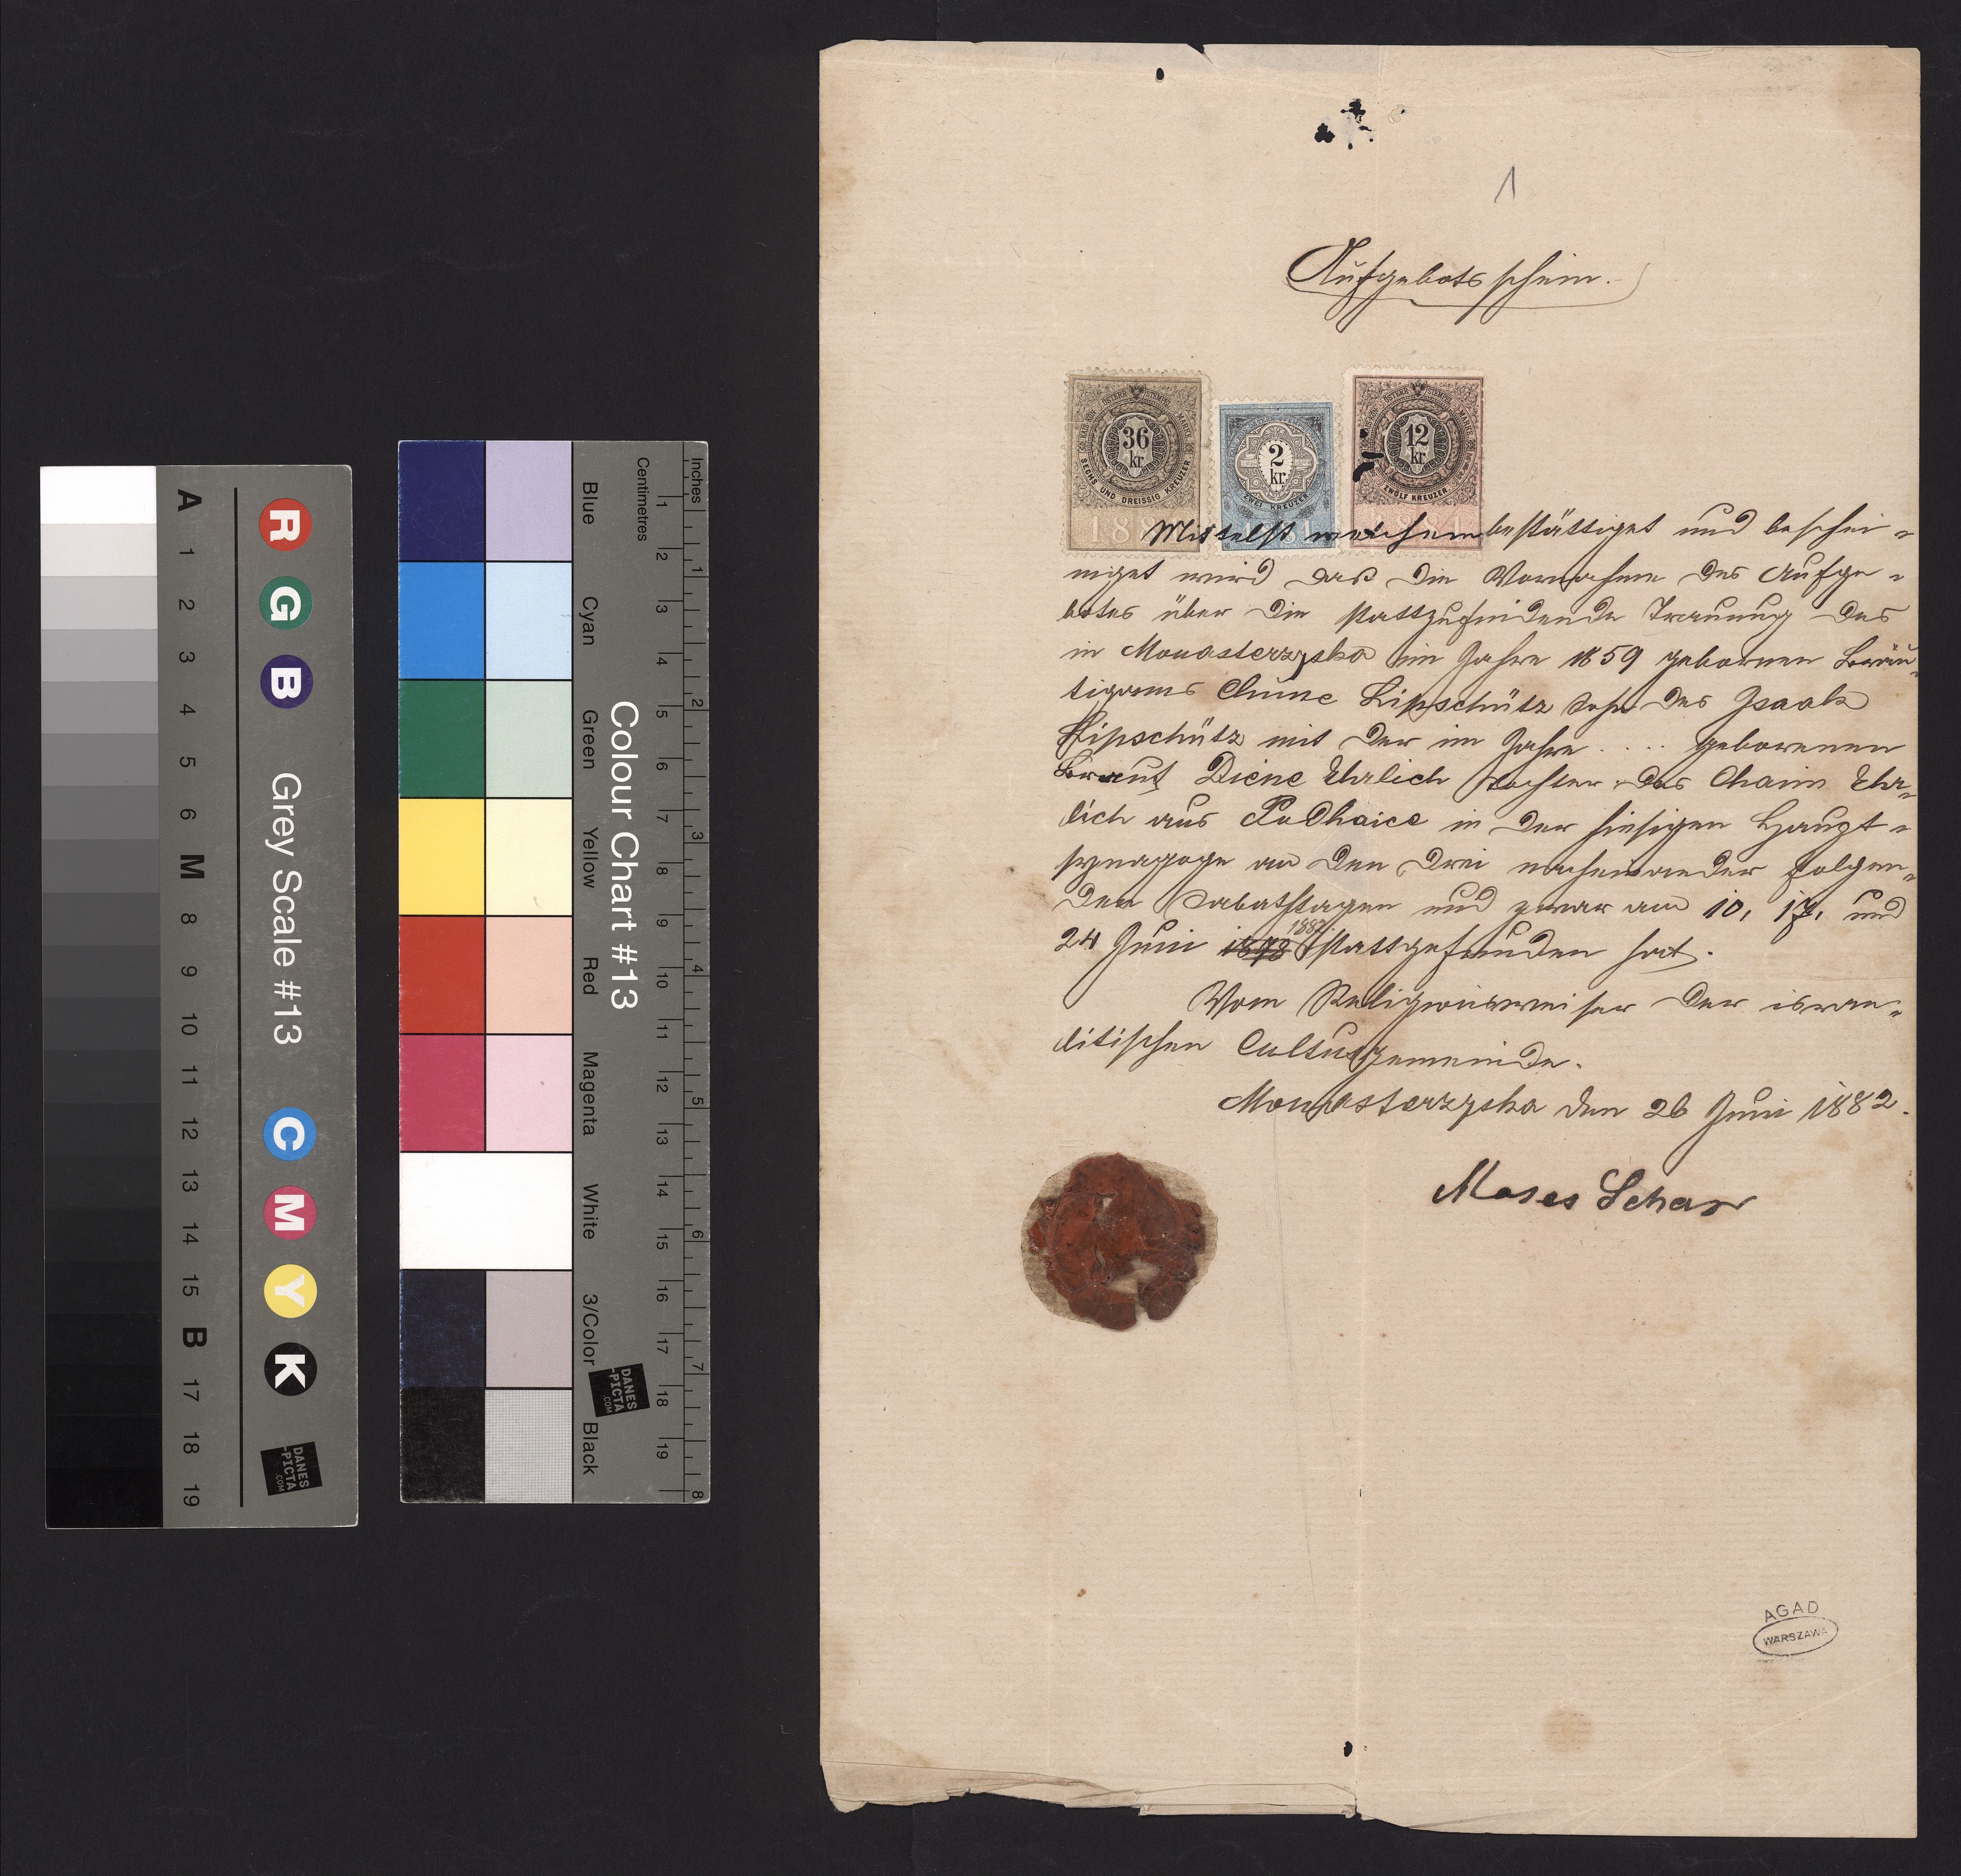 1
Aufgebotsschein.
36
kr
SECHS UND DREISSIG KREUZER
188
2
kr
ZWEI KREUZER
12
kr
ZWÖLF KREUZER
Mittelst welchem bestättiget und beschei=
niget wird das die Vornahme des Aufge=
botes über die stattzufindende Trauung des
in Monasterzyska im Jahre 1859 gebornen Bräu=
tigams Chune Lipschütz Sohn des Isaak
Lipschütz mit der im Jahre .... geborenen
Braut Diene Ehrlich Tochter des Chaim Ehr=
lich aus Podhaice in der hiesigen Haupt=
synagoge an den drei nacheinander folgen=
den Sabathstagen und zwar am 10, 17, und
24 Juni 1878 1882 stattgefunden hat.
Vom Religionsweiser der israe=
litischen Cultusgemeinde.
Monasterzyska den 26 Juni 1882.
Moses Scharr
AGAD
WARSZAWA
A
1
2
3
4
5
6
M
8
9
10
11
12
13
14
15
B
17
18
19
R
G
B
Grey Scale #13
C
M
Y
K
DANES
-PICTA
.COM
Blue
Cyan
Green
Yellow
Red
Magenta
White
3/Color
Black
Colour Chart #13
DANES
-PICTA
.COM
Centimetres
1
2
3
4
5
6
7
8
9
10
11
12
13
14
15
16
17
18
19
Inches
1
2
3
4
5
6
7
8